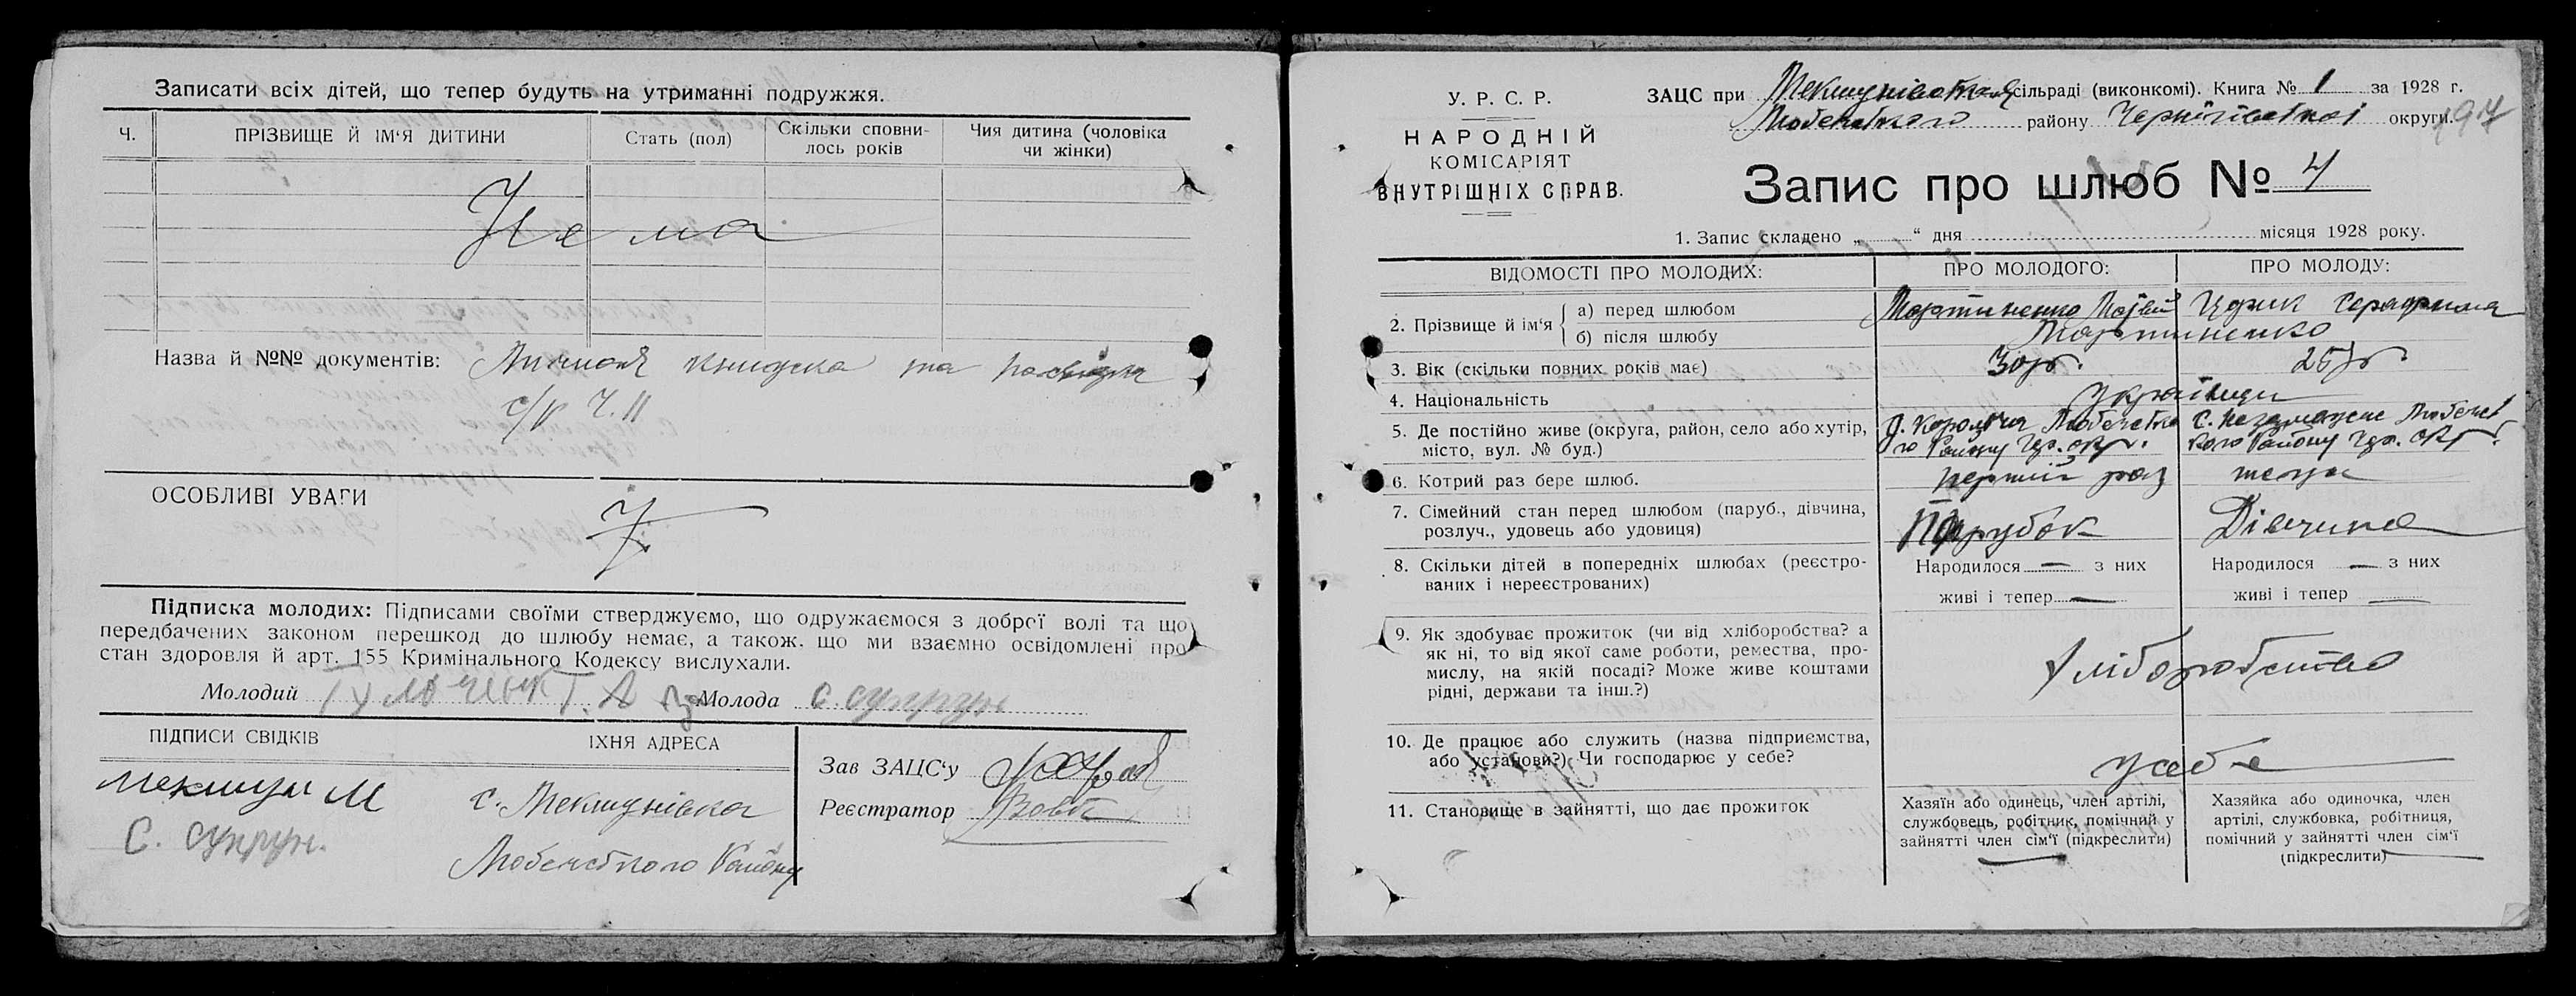 Записати всіх дітей, що тепер будуть на утриманні подружжя.
Ч. ПРІЗВИЩЕ Й ІМ‘Я ДИТИНИ Стать (пол) Скільки сповни-лось років Чия дитина (чоловіка чи жінки)
Нема
Назва й №№ документів: книжка та посвідка
с/р Ч. 11
ОСОБЛИВІ УВАГИ
Підписка молодих: Підписами своїми стверджуємо, що одружаємося з доброї волі та що
передбачених законом перешкод до шлюбу немає, а також. що ми взаємно освідомлені про
стан здоровля й арт. 155 Кримінального Кодексу вислухали.
Молодий Молода С. Супрун
ПІДПИСИ СВІДКІВ ЇХНЯ АДРЕСА
Мекшун М с. Мекшунівка
С. Супрун. Любечського Району
Зав ЗАЦС‘у
Реєстратор Вовк
У. Р. С. Р.
НАРОДНІЙ
КОМІСАРІЯТ
ВНУТРІШНІХ СПРАВ.
ЗАЦС при Мекшунівській сільраді (виконкомі). Книга № 1 за 1928 г.
Любечського району Чернігівської округи.
Запис про шлюб № 4
1. Запис складено „ “ дня місяця 1928 року.
ВІДОМОСТІ ПРО МОЛОДИХ: ПРО МОЛОДОГО: ПРО МОЛОДУ:
2. Прізвище й ім‘я
а) перед шлюбом Мартиненко Матвій Серафима
б) після шлюбу Мартиненко
3. Вік (скільки повних років має) 30 р. 25 р.
4. Національність Українці
5. Де постійно живе (округа, район, село або хутір,
місто, вул. № буд.)
Любечсько
го Району Чер. окр. с. Незаможне Любечсь
кого Району Чер. окр.
6. Котрий раз бере шлюб. перший раз теж
7. Сімейний стан перед шлюбом (паруб., дівчина,
розлуч., удовець або удовиця) Парубок Дівчина
8. Скільки дітей в попередніх шлюбах (реєстро-
ваних і нереєстрованих)
Народилося — з них Народилося — з них
живі і тепер — живі і тепер —
9. Як здобуває прожиток (чи від хліборобства? а
як ні, то від якої саме роботи, ремества, про-
мислу, на якій посаді? Може живе коштами
рідні, держави та інш.?)
Хліборобство
10. Де працює або служить (назва підприємства,
або установи?) Чи господарює у себе?
У себе
11. Становище в зайнятті, що дає прожиток
Хазяїн або одинець, член артілі,
службовець, робітник, помічний у
зайнятті член сім‘ї (підкреслити)
Хазяйка або одиночка, член
артілі, службовка, робітниця,
помічний у зайнятті член сім‘ї
(підкреслити)